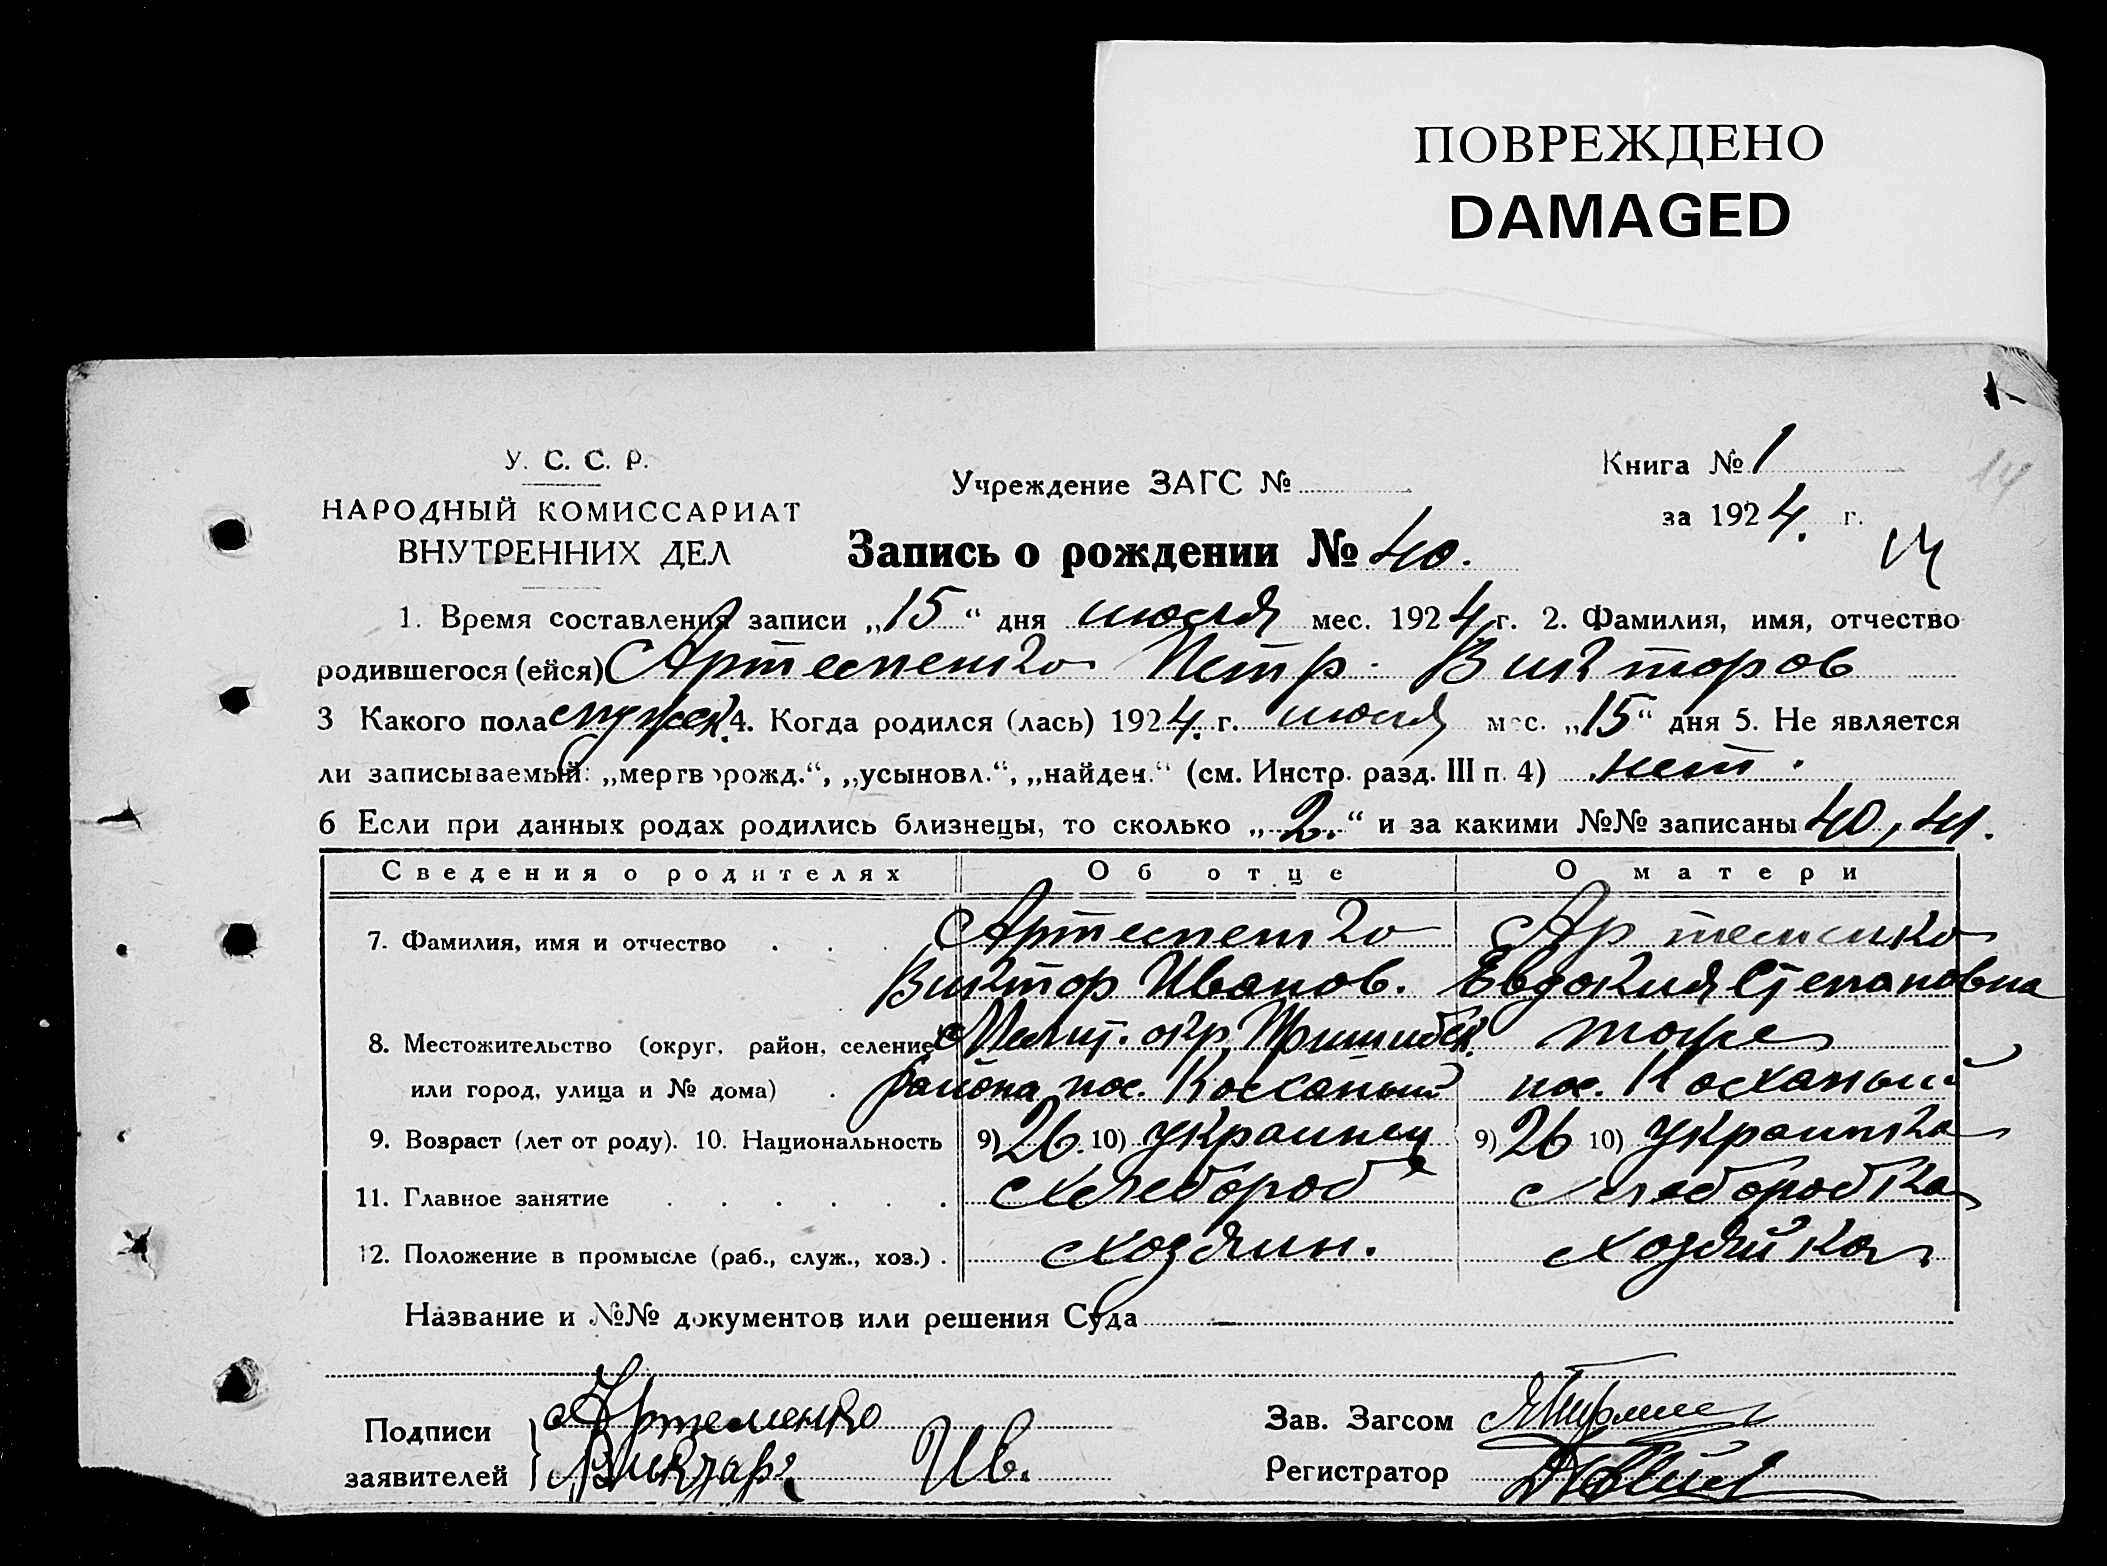 ПОВРЕЖДЕНО
DAMAGED
У. С. С. Р.
НАРОДНЫЙ КОМИССАРИАТ
ВНУТРЕННИХ ДЕЛ
Учреждение ЗАГС №
Книга № 1
за 1924. г.
14
Запись о рождении № 40.
1. Время составления записи „15“ дня июля мес. 1924 г. 2. Фамилия, имя, отчество
родившегося (ейся) Артеменко Петр Викторов
3 Какого пола мужск. 4. Когда родился (лась) 1924. г. июля мес. „15“ дня 5. Не является
ли записываемый: „мертворожд.“, „усыновл.“, „найден.“ (см. Инстр. разд. III п. 4) нет.
6 Если при данных родах родились близнецы, то сколько „2.“ и за какими №№ записаны 40, 41.
Сведения о родителях Об отце О матери
7. Фамилия, имя и отчество Артеменко Артеменко
Виктор Иванов. Евдокия Степановна
8. Местожительство (округ, район, селение Мелит. окр. тоже
или город, улица и № дома) района, пос. пос.
9. Возраст (лет от роду). 10. Национальность 9) 26. 10) украинец 9) 26 10) украинка
11. Главное занятие Хлебороб Хлеборобка
12. Положение в промысле (раб., служ., хоз.) хозяин. хозяйка
Название и №№ документов или решения Суда —
Подписи заявителей Артеменко
Виктар Ив.
Зав. Загсом
Регистратор